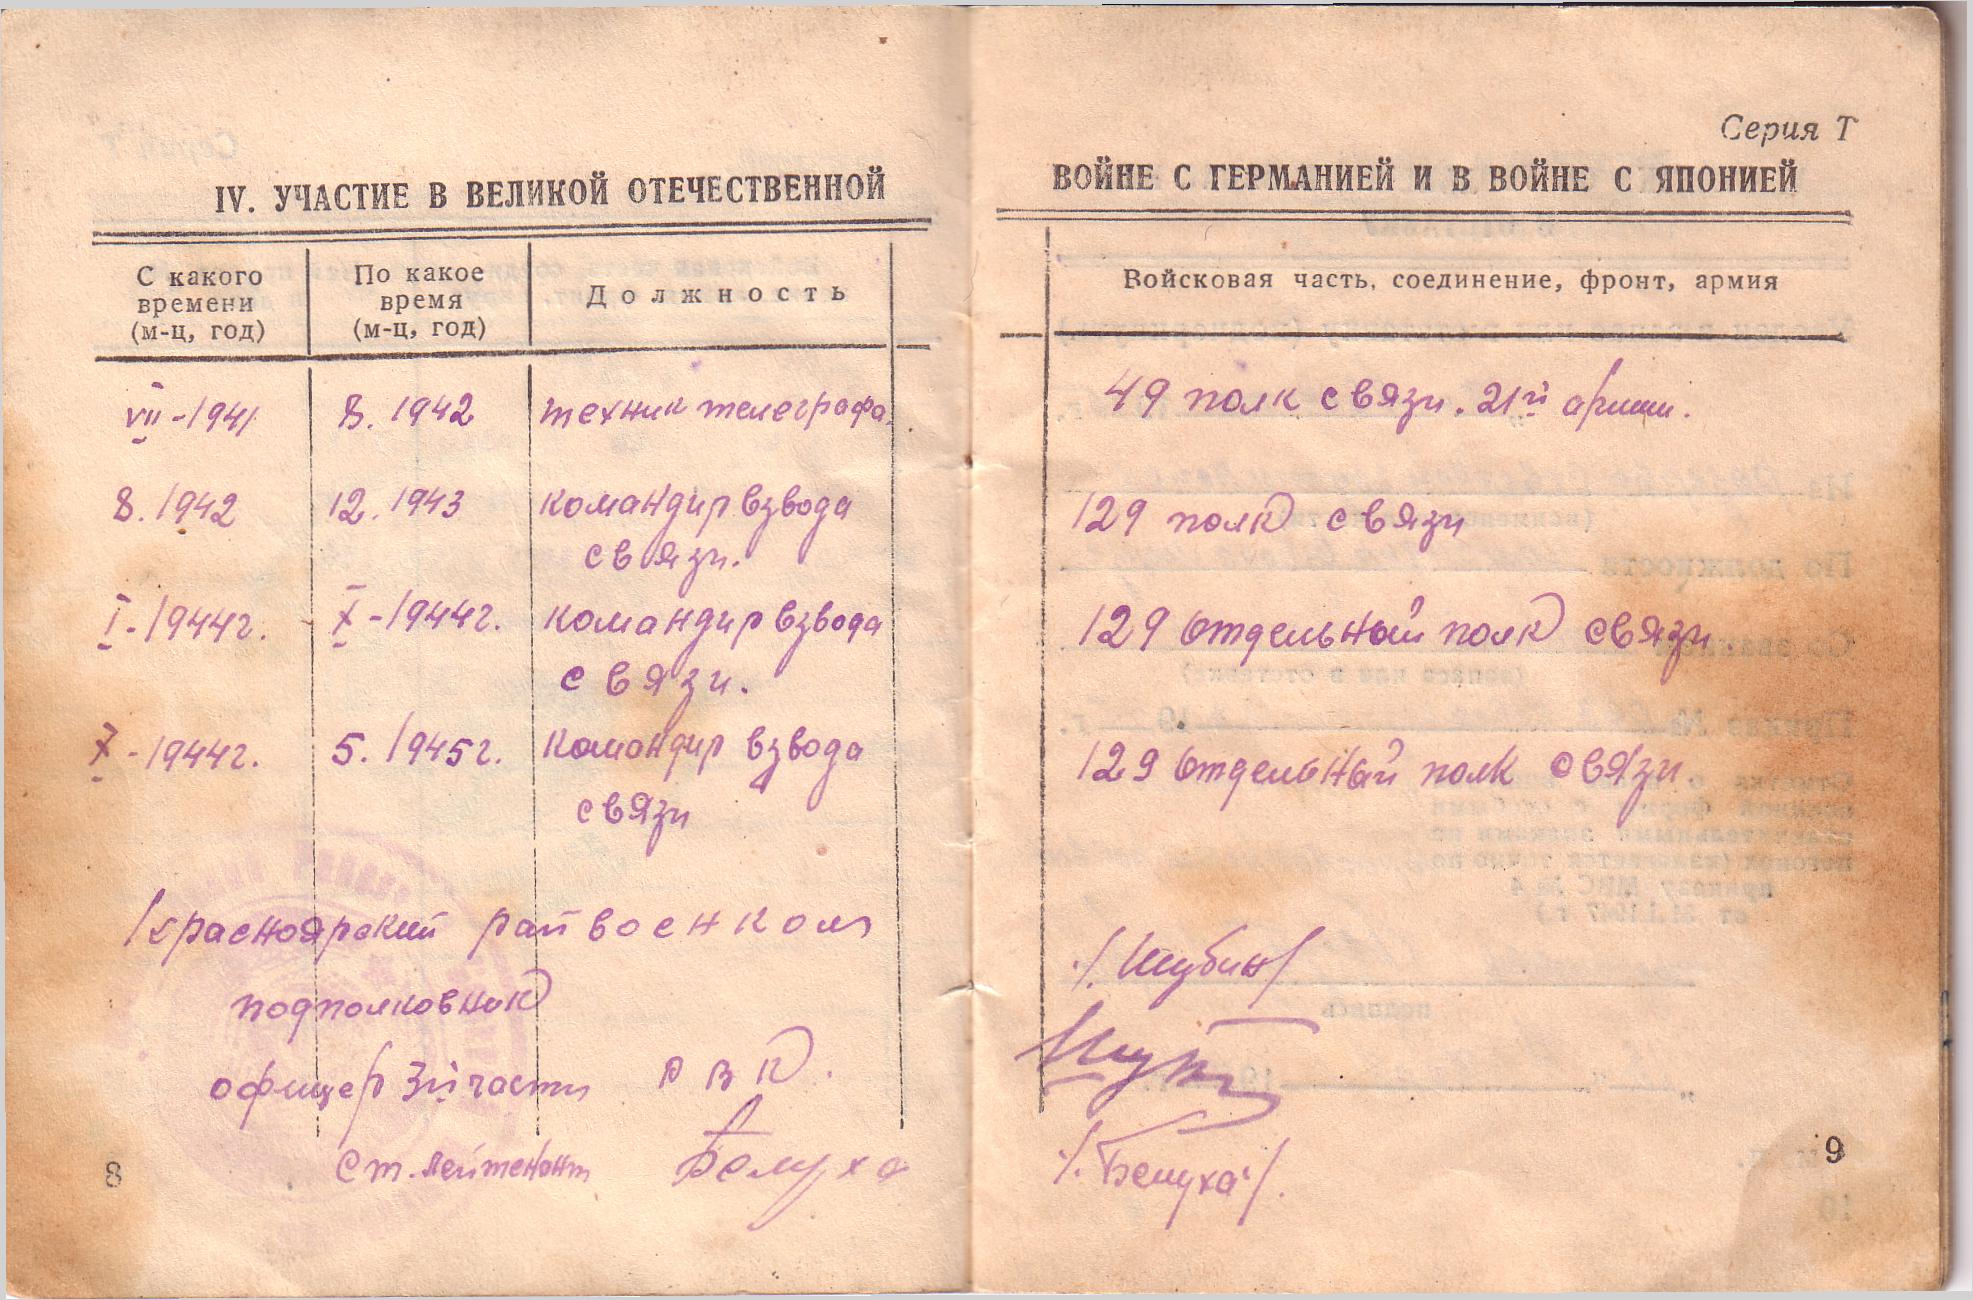 IV. УЧАСТИЕ В ВЕЛИКОЙ ОТЕЧЕСТВЕННОЙ
С какого времени (м-ц, год)
По какое время (м-ц, год)
Должность
VII-1941
8. 1942
техник телеграфа.
8. 1942
12. 1943
командир взвода
связи.
I-1944г.
X-1944г.
командир взвода
связи.
X-1944г.
5. 1945г.
командир взвода
связи
Красноярский райвоенком
подполковник
офицер 3й части РВК.
ст. лейтенант Белуха
8
Серия Т
ВОЙНЕ С ГЕРМАНИЕЙ И В ВОЙНЕ С ЯПОНИЕЙ
Войсковая часть, соединение, фронт, армия
49 полк связи. 21й армии.
129 полк связи
129 отдельный полк связи.
129 отдельный полк связи
/Шубин/
/Белуха/.
9